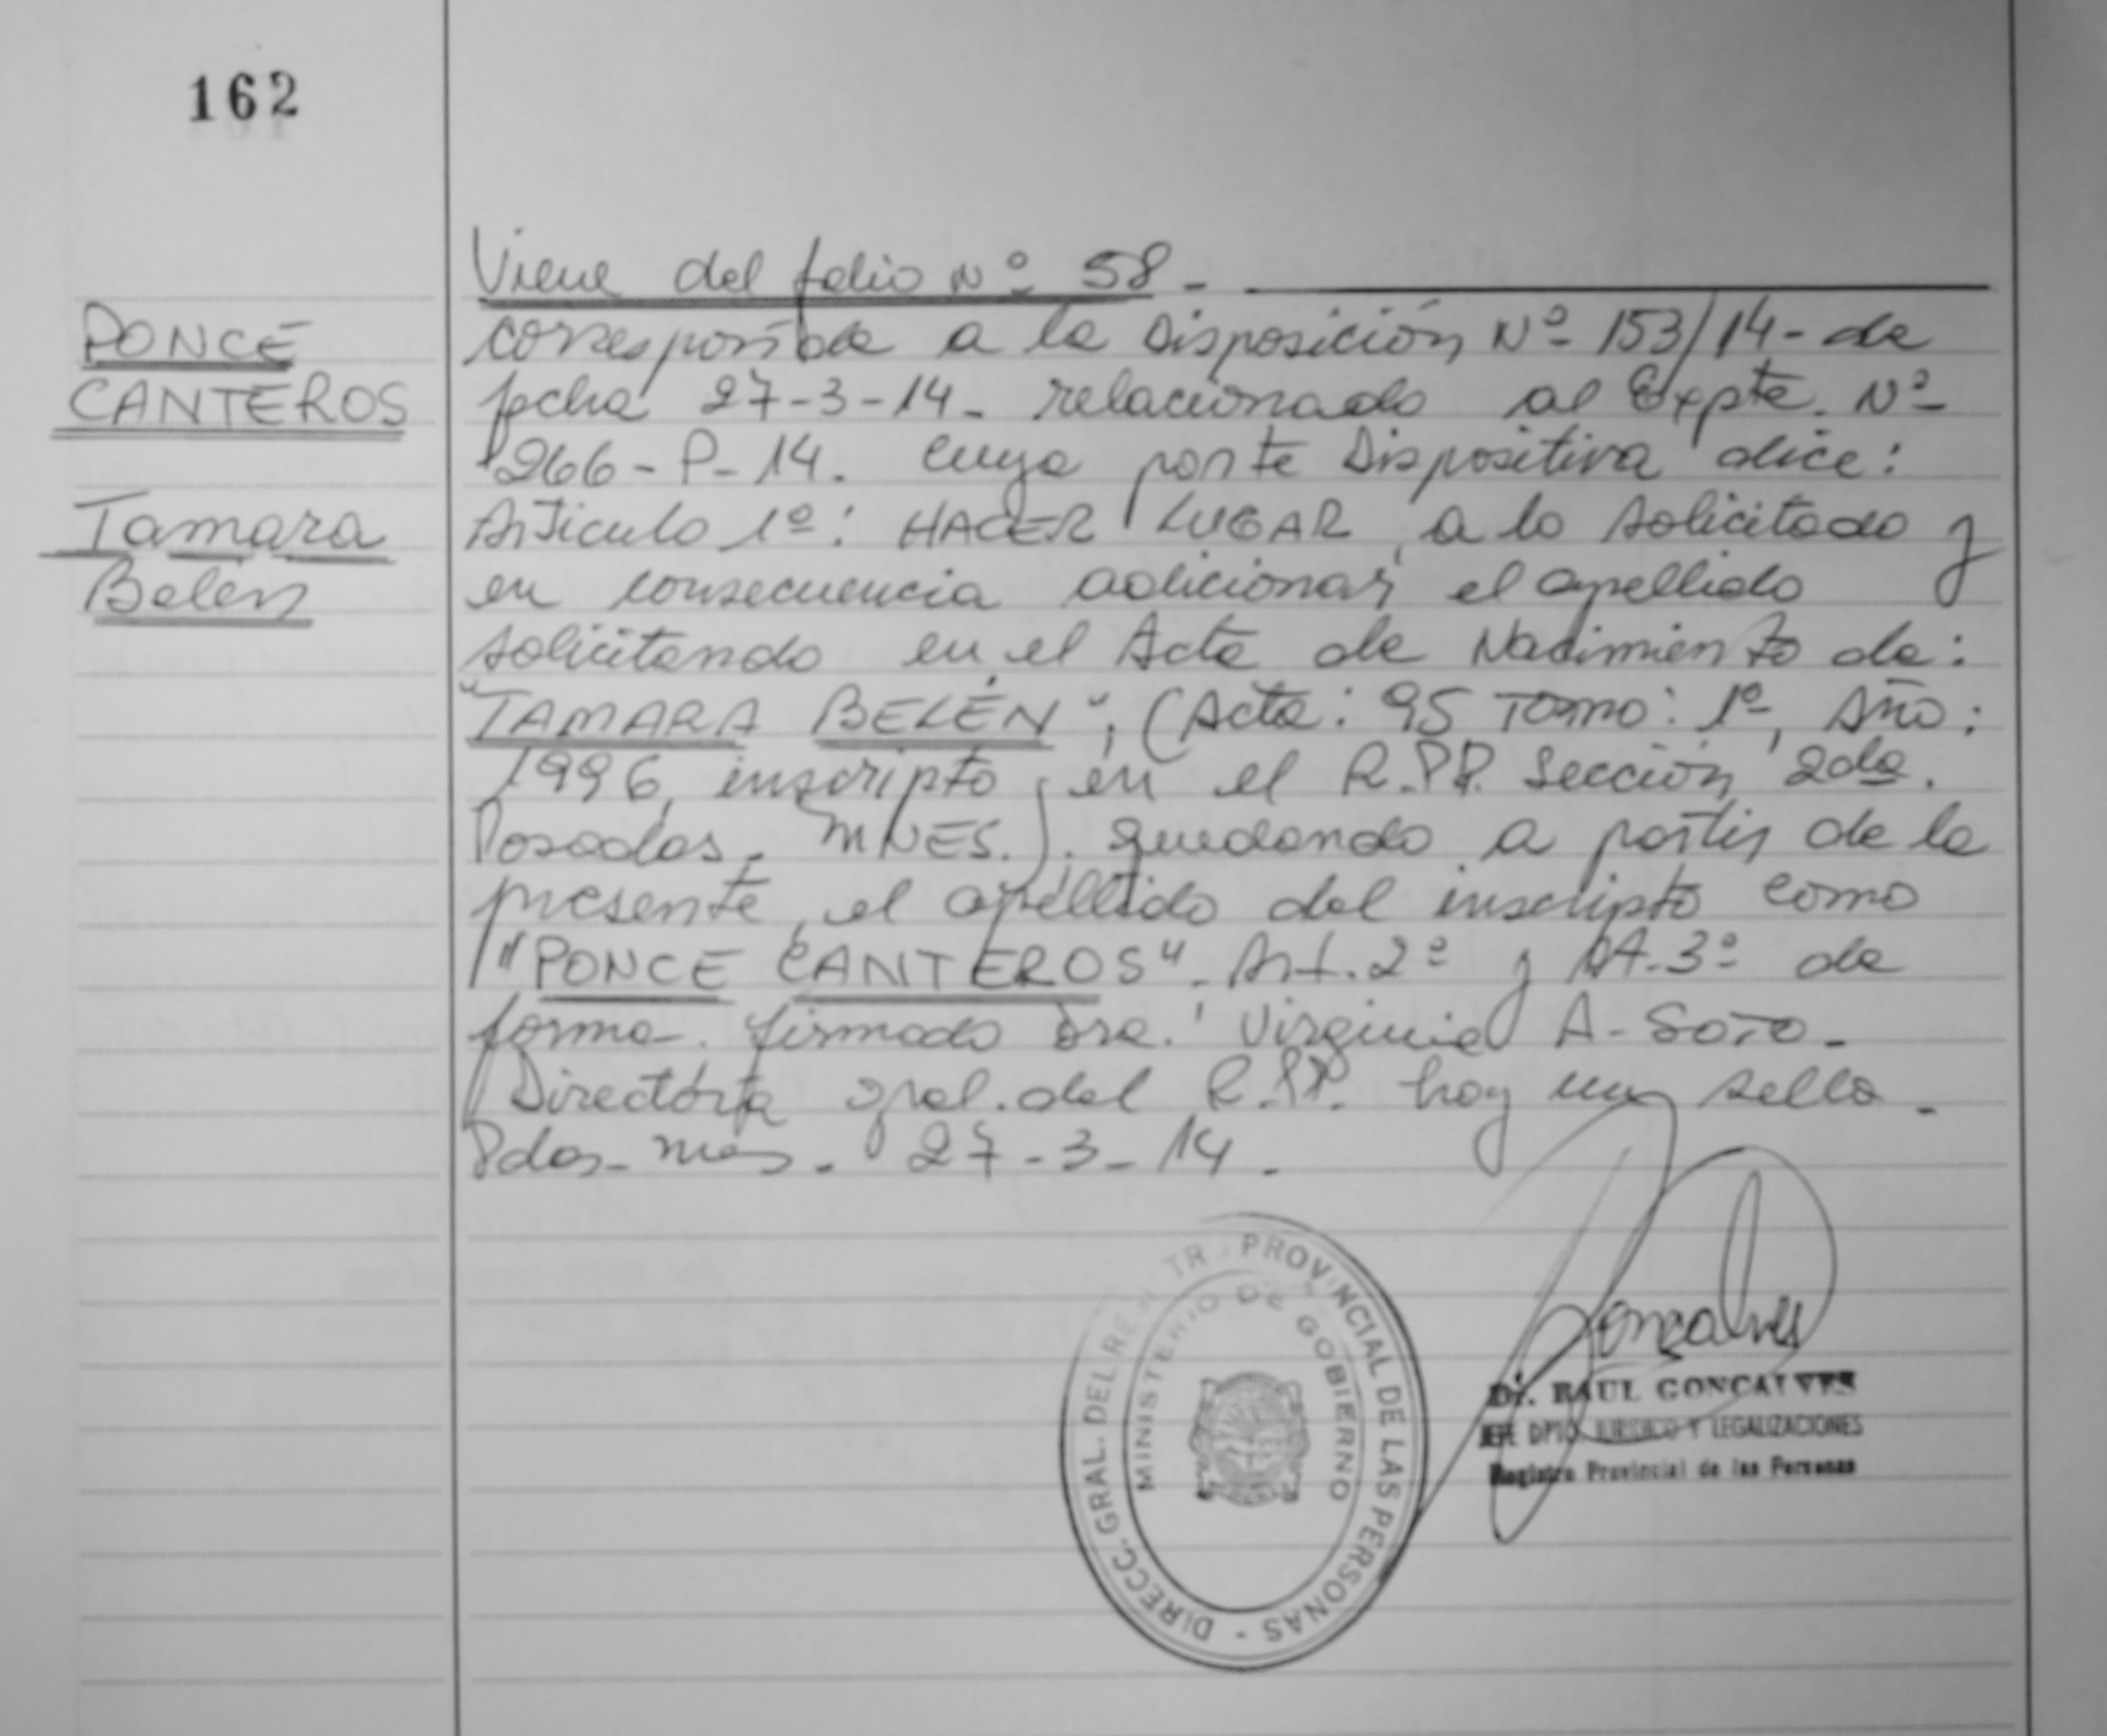 162
PONCE
CANTEROS
Tamara
Belén
Viene del folio Nº 58 -
corresponde a la Disposición Nº 153/14 - de
fecha 27-3-14 - relacionado al Expte. Nº
266 - P - 14. Cuya parte Dispositiva dice:
Articulo 1º: HACER LUGAR a lo solicitado y
en consecuencia adicionar el apellido
solicitando en el Acta de Nacimiento de:
"TAMARA BELÉN", (Acta: 95 Tomo: 1º, Año:
1996, inscripto en el R.P.P. Sección 2da.
Posadas, MNES.). quedando a partir de la
presente, el apellido del inscripto como
"PONCE CANTEROS". Art. 2º y Art. 3º de
forma. firmado Dra. Virginia A. SOTO -
Directora gral. del R.P.P. hay un sello -
Pdas - Mes. 27-3-14 -
DIRECC. GRAL. DEL RE TR PROVINCIAL DE LAS PERSONAS -
MINISTERIO DE GOBIERNO
Gonçalves
Dr. RAUL GONCALVES
JEFE DPTO. JURIDICO Y LEGALIZACIONES
Registro Provincial de las Personas